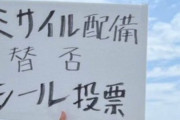 ミサイル配備
賛否
シール投票